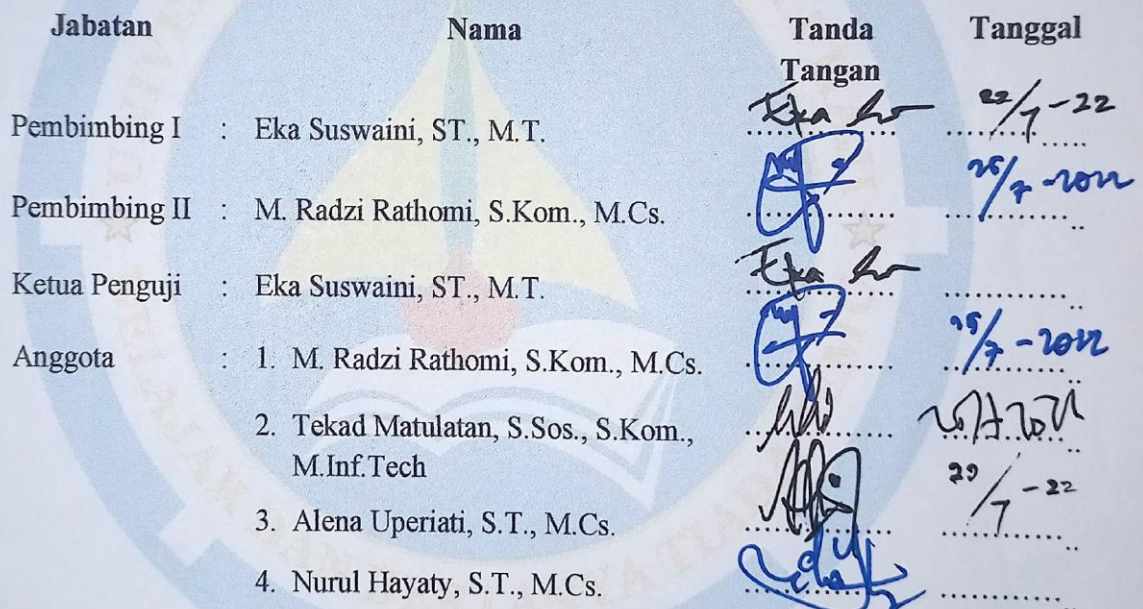 Jabatan Nama Tanda Tangan Tanggal
Eka 22/7-22
Pembimbing I : Eka Suswaini, ST., M.T.
25/7-2022
Pembimbing II : M. Radzi Rathomi, S.Kom., M.Cs.
Eka
Ketua Penguji : Eka Suswaini, ST., M.T.
25/7-2022
Anggota : 1. M. Radzi Rathomi, S.Kom., M.Cs.
2. Tekad Matulatan, S.Sos., S.Kom.,
M.Inf.Tech
/7-22
3. Alena Uperiati, S.T., M.Cs.
4. Nurul Hayaty, S.T., M.Cs.